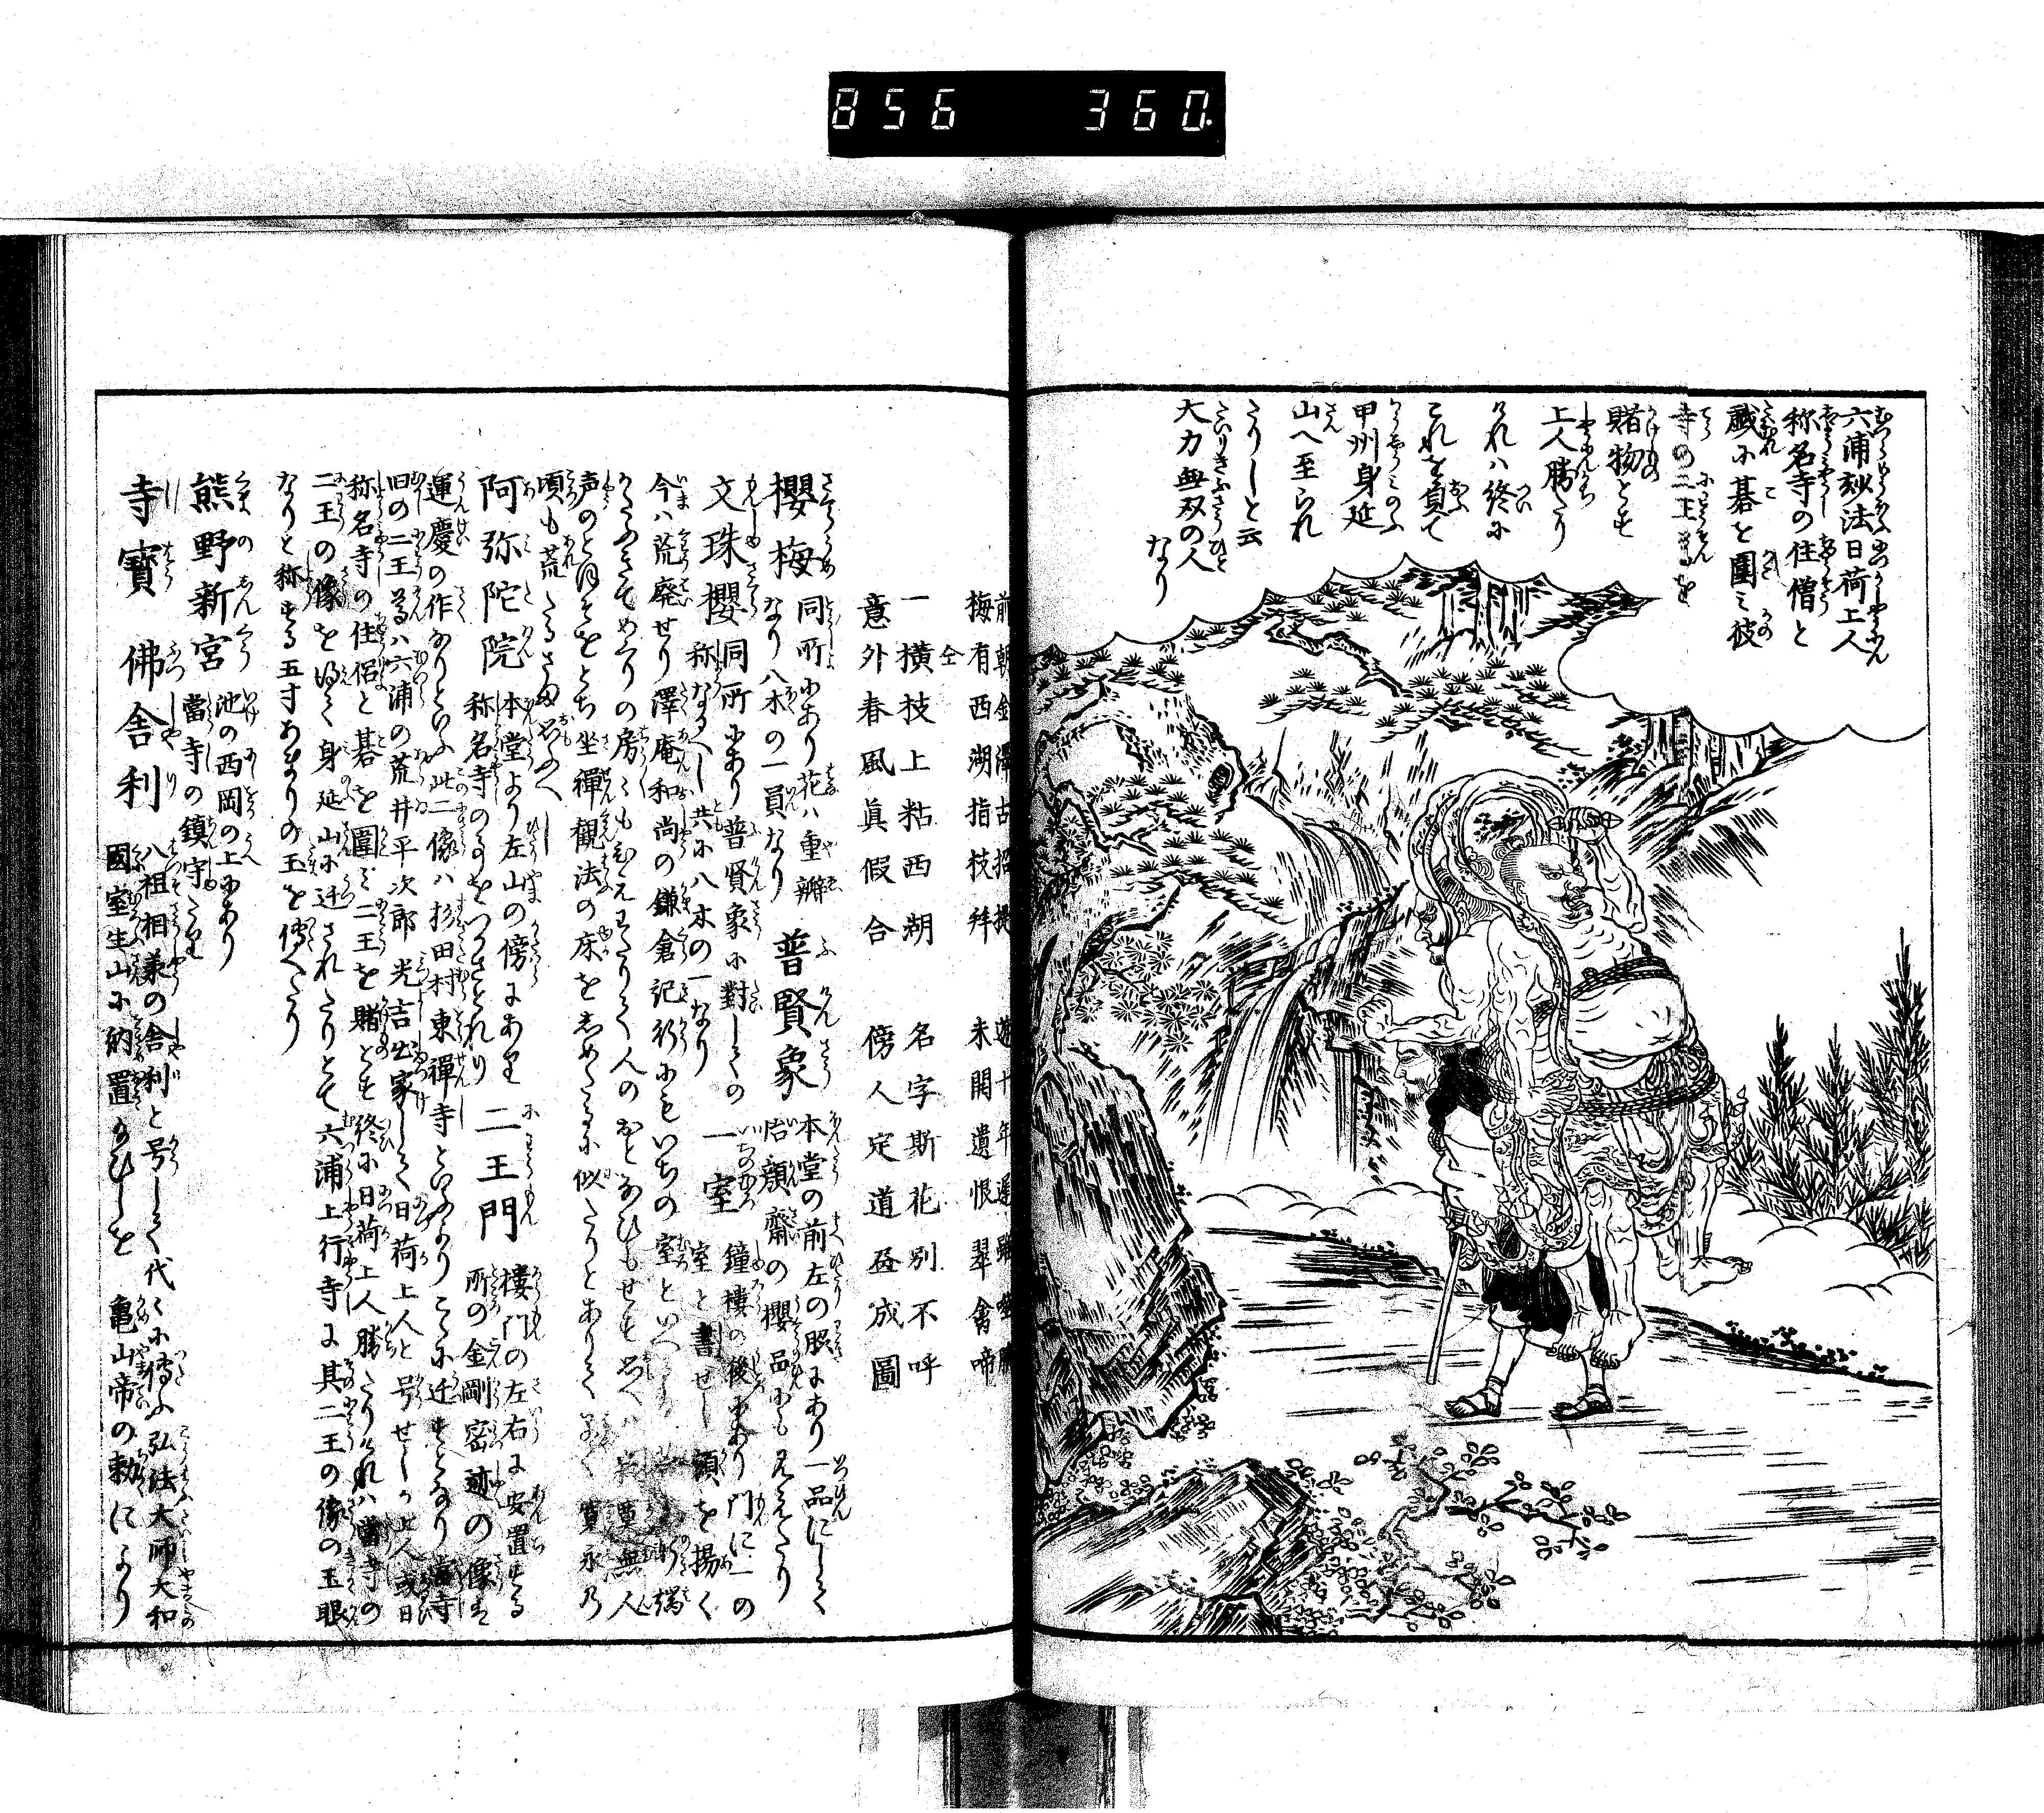 856 360
六浦妙法日荷上人
称名寺の住僧と
戯に碁を圍ミ彼
寺の二王尊を
賭物とす
上人勝たり
けれハ終に
これを負て
甲州身延
山へ至られ
たりしと云
大力無双の人
なり
前朝金澤古招提 遊十年遅雖噬臍
梅有西湖指枝拜 未開遺恨翠禽啼
仝
一横枝上粘西湖 名字斯花別不呼
意外春風眞假合 傍人定道画成圖
櫻梅 同所にあり花ハ重瓣
なり八木の一員なり
普賢象 本堂の前左の照にあり一品にして
怡顔齋の櫻品にも見えたり
文珠櫻 同所にあり普賢象に對しての
称なるへし共に八木の一なり
一室 鐘樓の後にあり門に一の
室と書せし額を揚く
今ハ荒廃せり澤庵和尚の鎌倉記行にもいちの室といへる
声のとほそをとち坐禪觀法の床をしめたるに似たりとありて
頃も荒たるさま
阿弥陀院 本堂より左山の傍にあり
称名寺のことをつかさとれり
二王門 樓門の左右に安置する
所の金剛密迹の像は
運慶の作なりといふ此二像ハ杉田村東禪寺といふよりこゝに迁すとなり當寺
旧の二王尊ハ六浦の荒井平次郎光吉出家して日荷上人と号せしか上人或日
称名寺の住侶と碁を圍ミ二王を賭とす終に日荷上人勝たりけれハ當寺の
二王の像を得て身延山に迁されたりとて六浦上行寺に其二王の像の玉眼
なりと称する五寸あまりの玉を傳へたり
熊野新宮 池の西岡の上にあり
當寺の鎮守たり
寺寳 佛舎利 八祖相兼の舎利と号して代々に傳ふ弘法大師大和
國室生山に納置るひしを 亀山帝の勅により